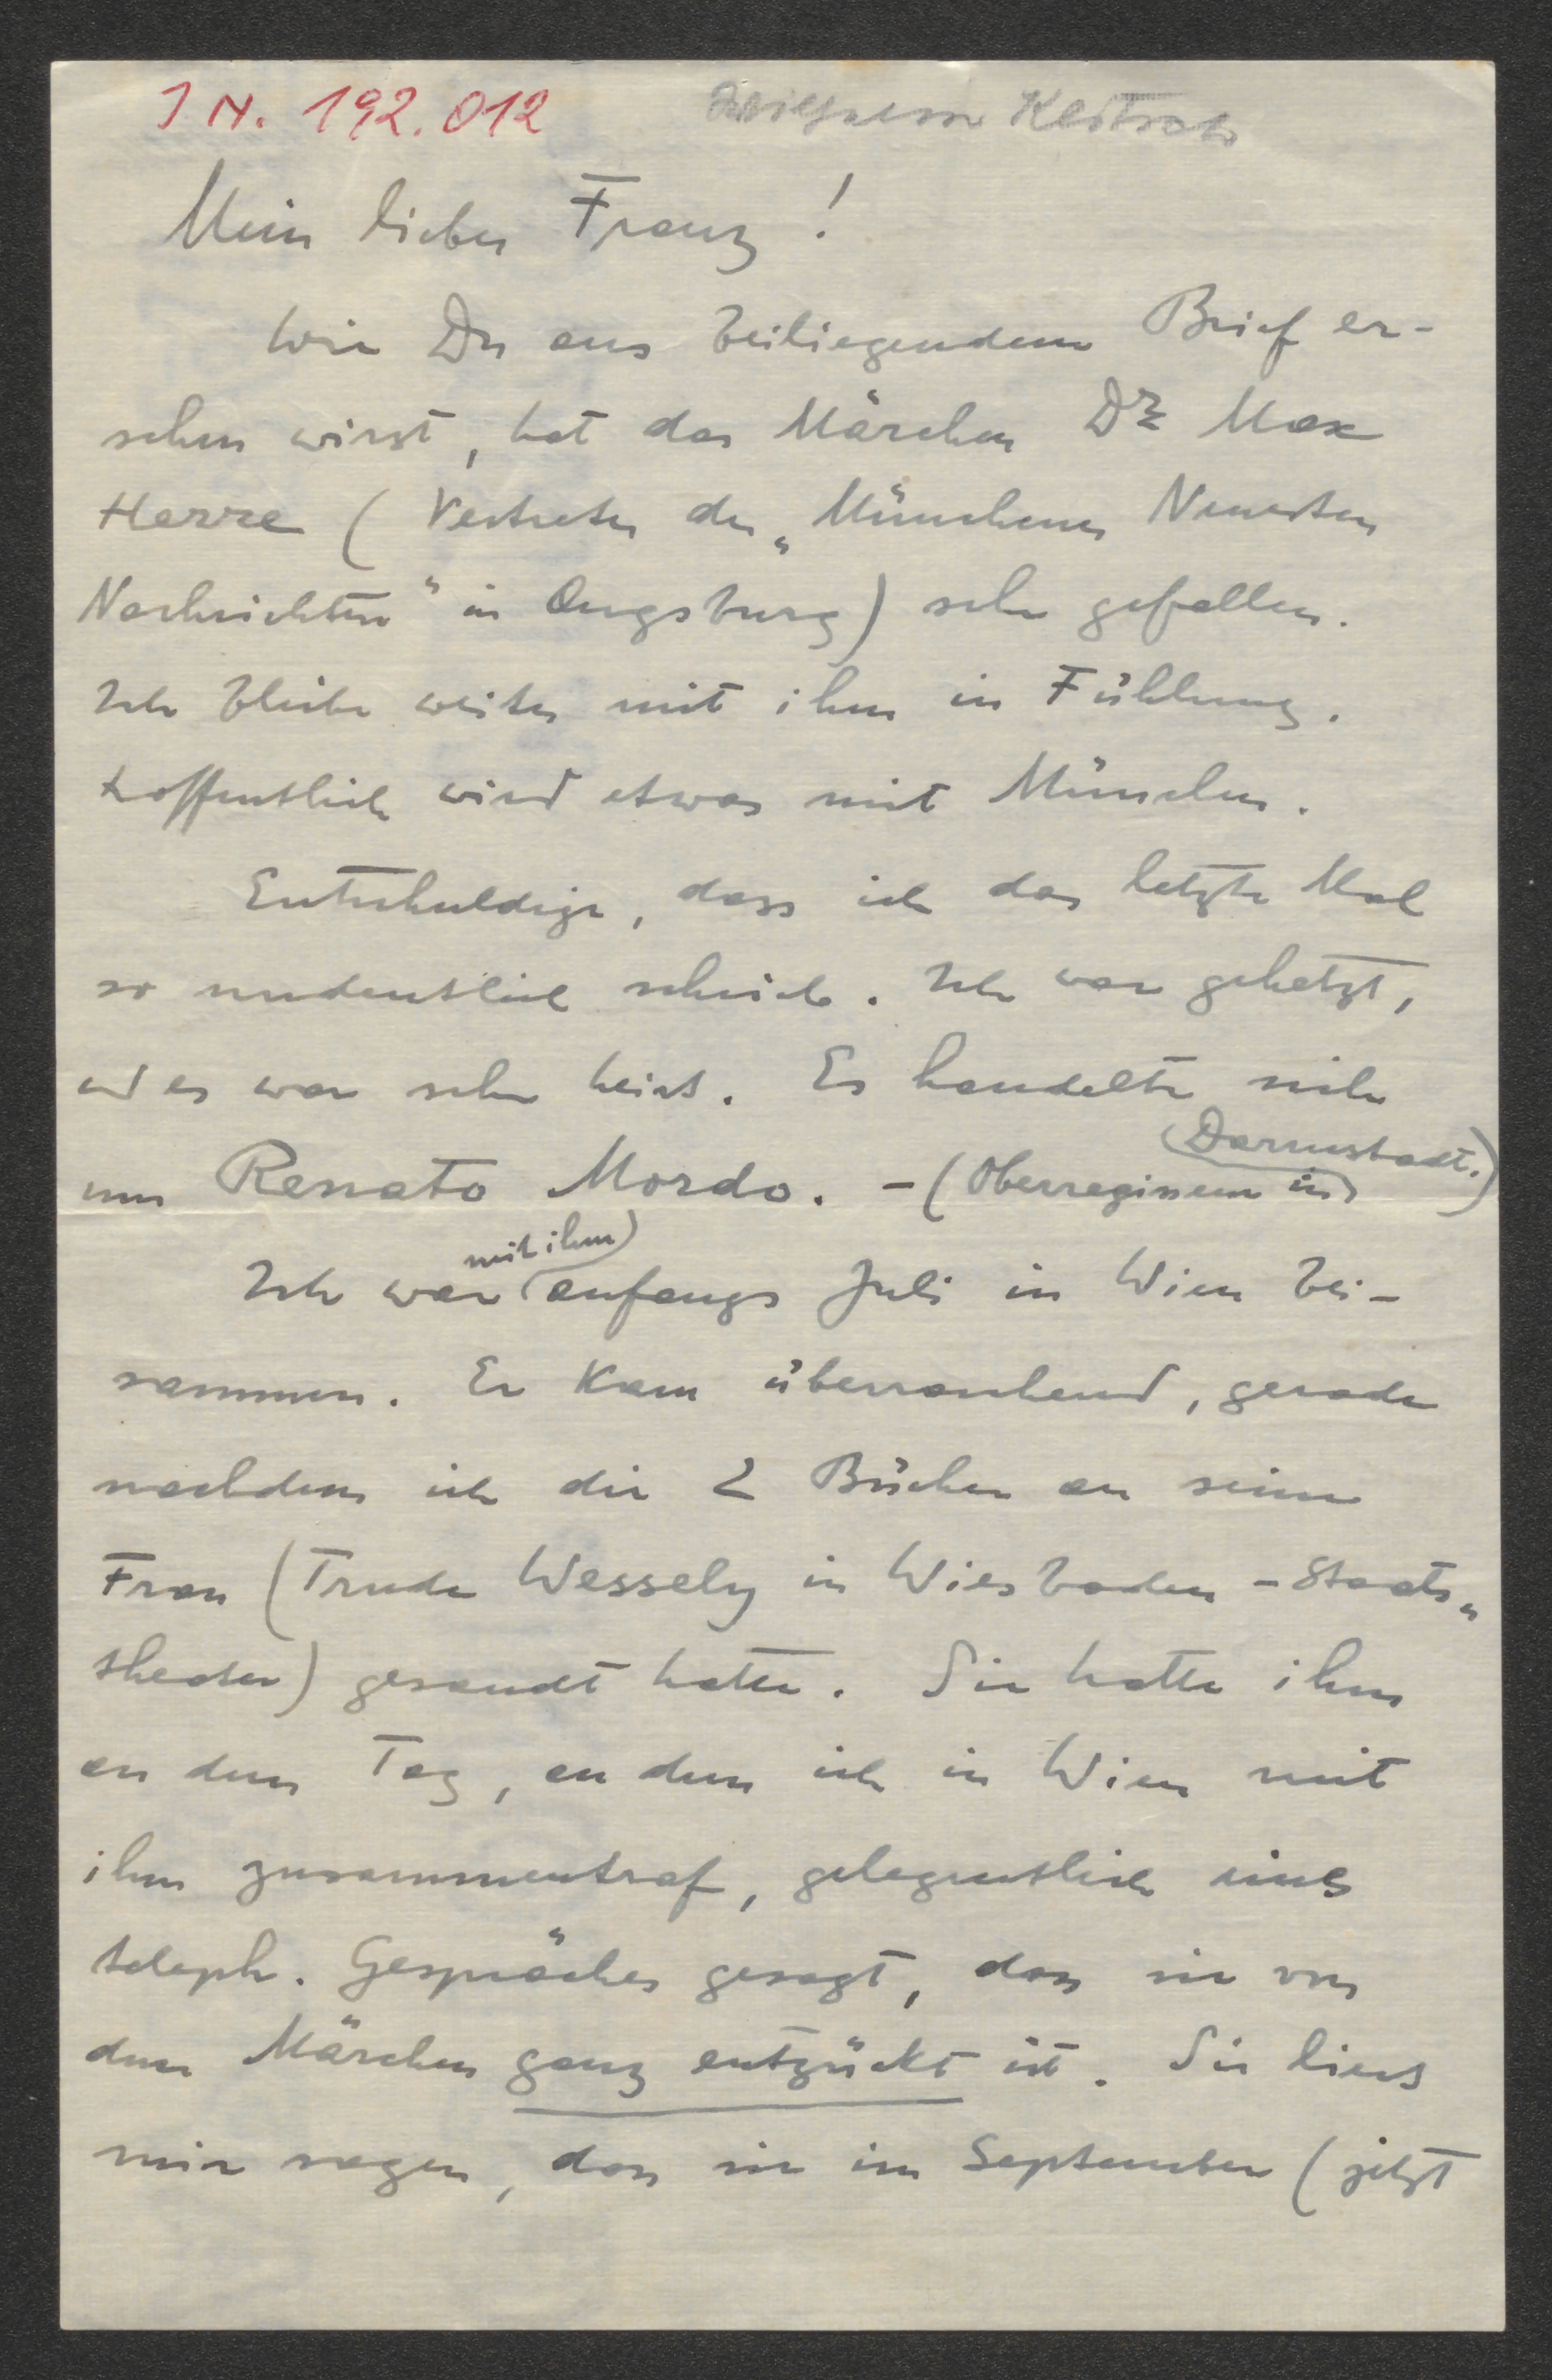 I N. 192.012
Mein lieber Franz!
Wie Du aus beiliegendem Brief er-
sehen wirst, hat das Märchen Dr Max
Herre (Vertreter der „Münchener Neuesten
Nachrichten" in Augsburg) sehr gefallen.
Ich bleibe weiter mit ihm in Fühlung.
Hoffentlich wird etwas mit München.
Entschuldige, dass ich das letzte Mal
so undeutlich schrieb. Ich war gehetzt,
und es war sehr heiss. Es handelte sich
um Renato Mordo. - (Oberregisseur in Darmstadt.)
Ich war mit ihm anfangs Juli in Wien bei-
sammen. Er kam überraschend, gerade
nachdem ich die 2 Bücher an seine
Frau (Trude Wessely in Wiesbaden - Staats„
theater) gesandt hatte. Sie hatte ihm
an dem Tag, an dem ich in Wien mit
ihm zusammentraf, gelegentlich eines
teleph. Gespräches gesagt, dass sie von
dem Märchen ganz entzückt ist. Sie liess
mir sagen, dass sie im September (jetzt